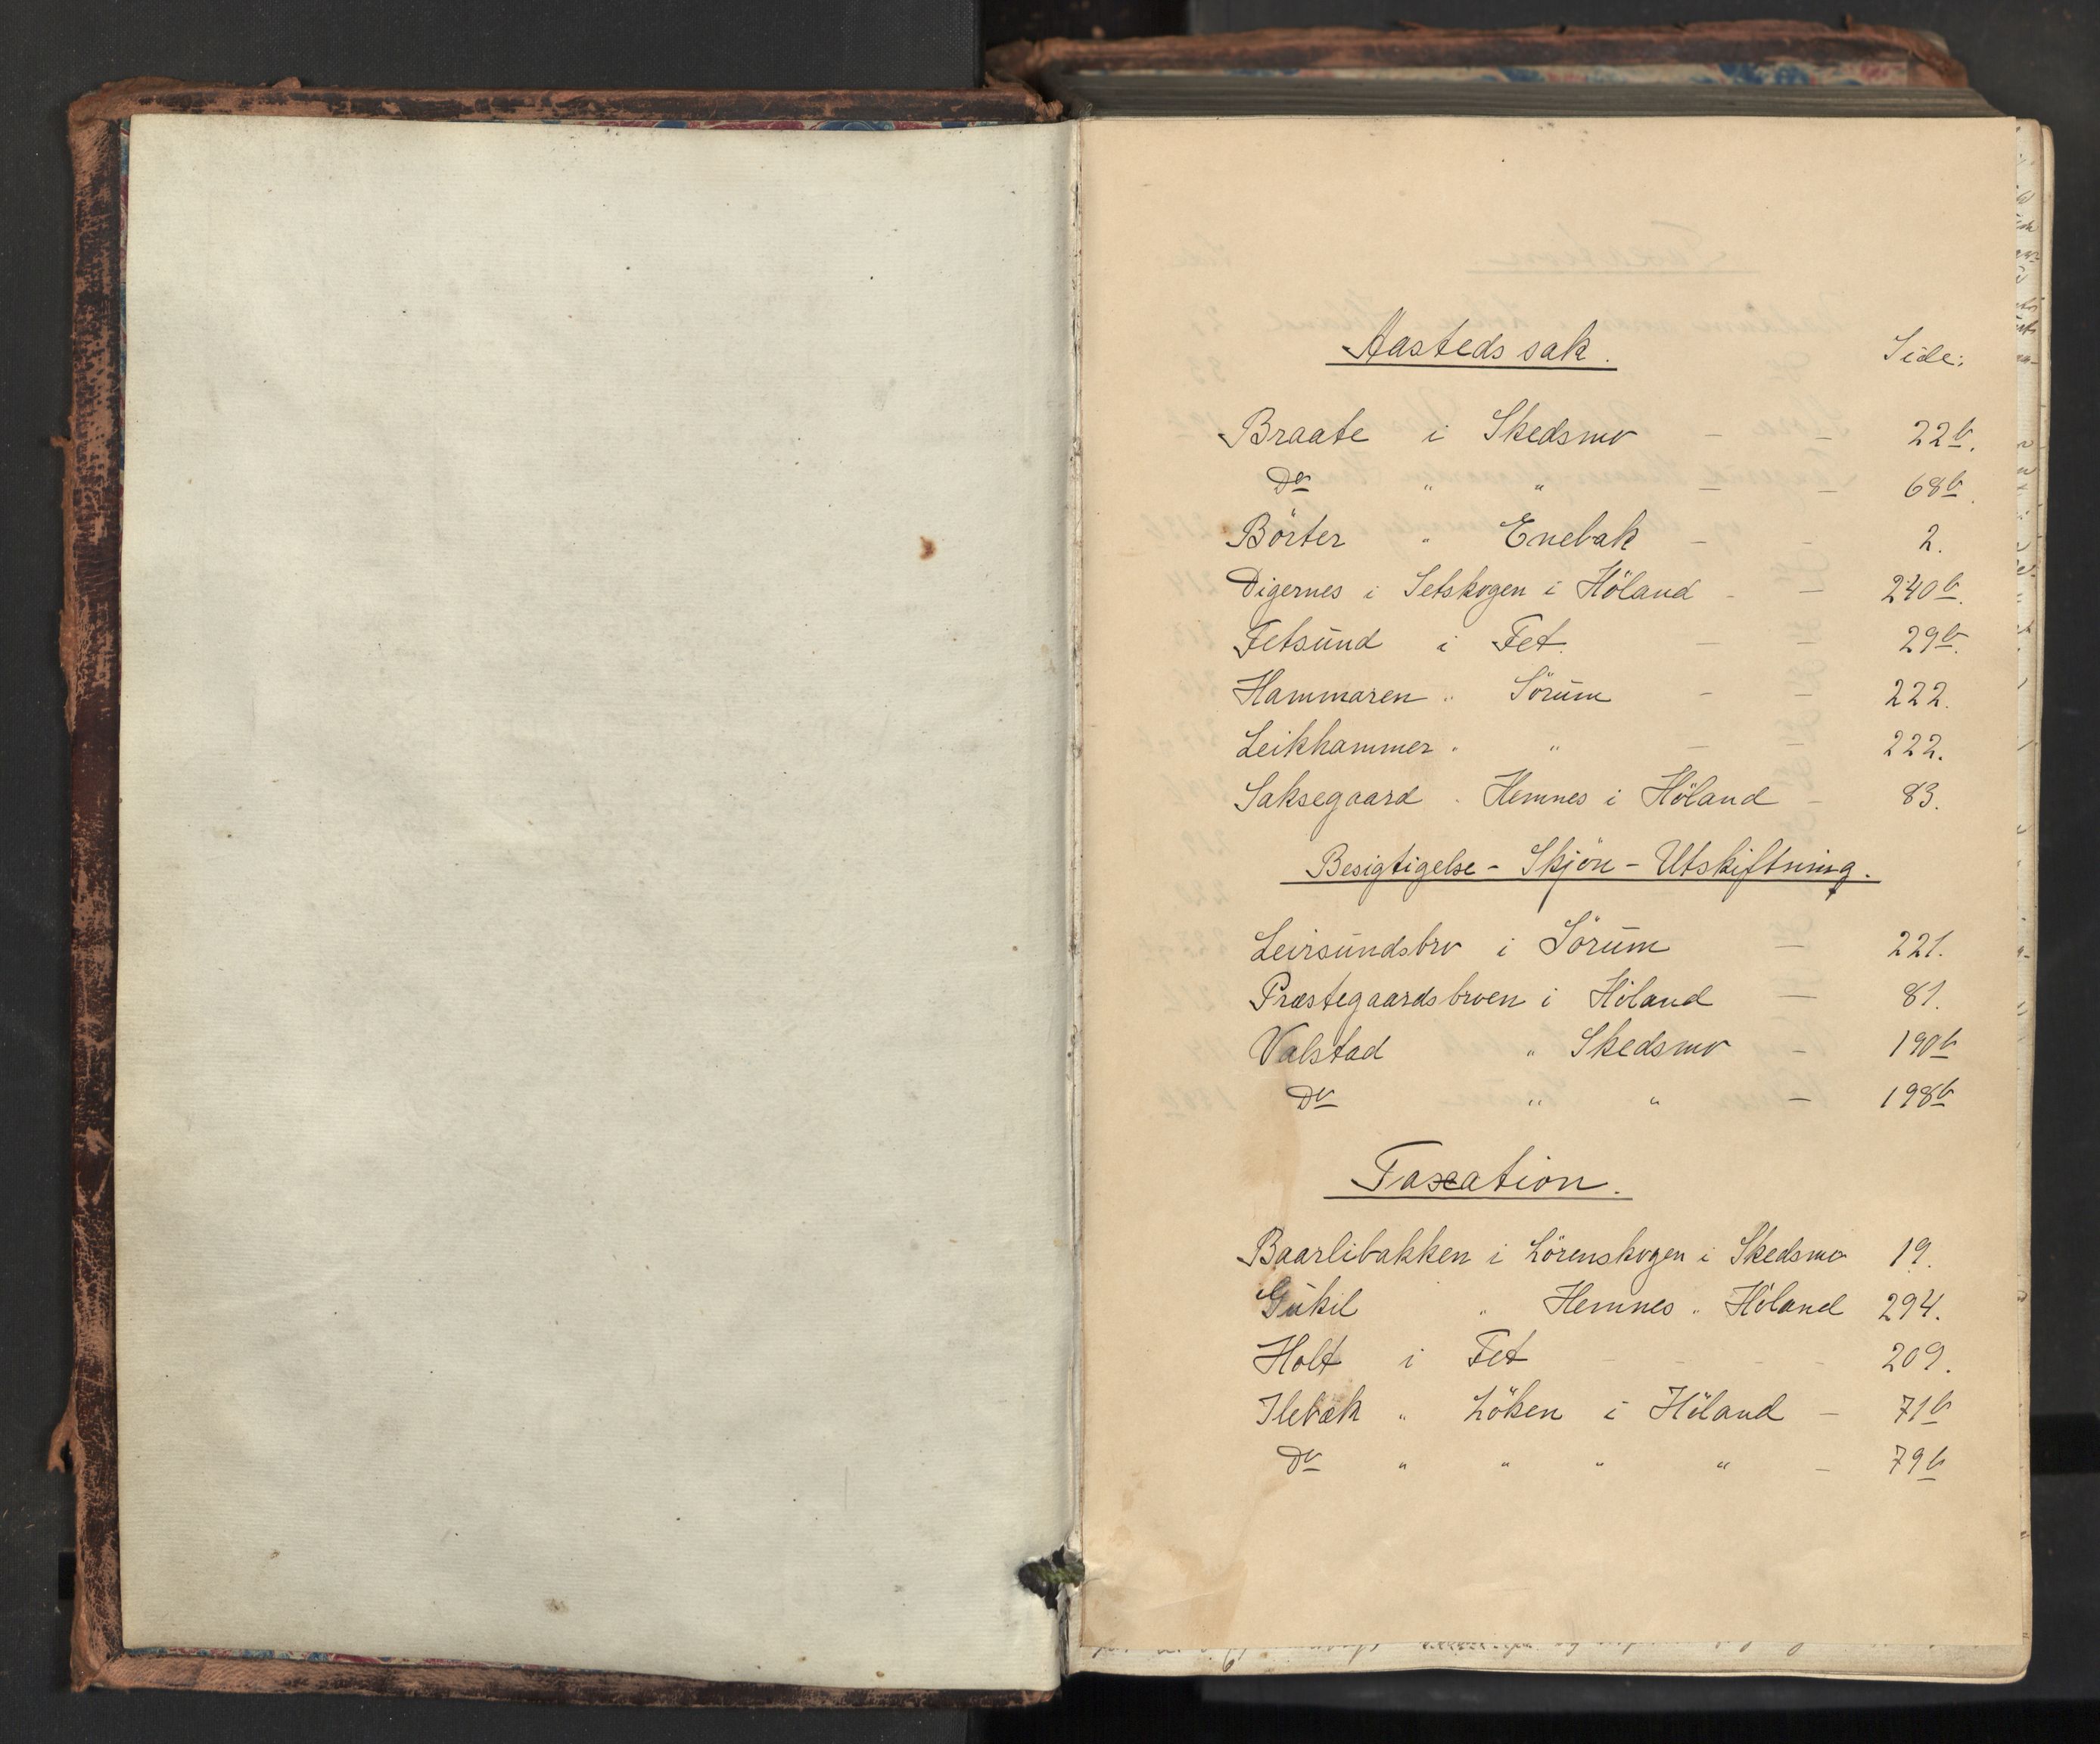 Aastedssak. Side:
Braate i Skedsmo — — 22b.
Do " " — — 68b.
Börter " Enebak — — 2.
Digernes i Setskogen i Höland — — 240b.
Fetsund i Fet. — — 29b.
Hammaren " Sörum — — 222.
Leikhammer " " — — 222.
Saksegaard " Hemnes i Höland — 83.
Besigtigelse - Skjön - Utskiftning.
Leirsundsbro i Sörum — 221.
Præstegaardsbroen i Höland — 81.
Valstad " Skedsmo — 190b
Do " " — 198b
Taxation.
Baarlibakken i Lörenskogen i Skedsmo 19.
Gukil " Hemnes " Höland 294.
Holt i Fet - - - - 209.
Ilebæk " Löken i Höland — 71b
Do " " " " — 79b